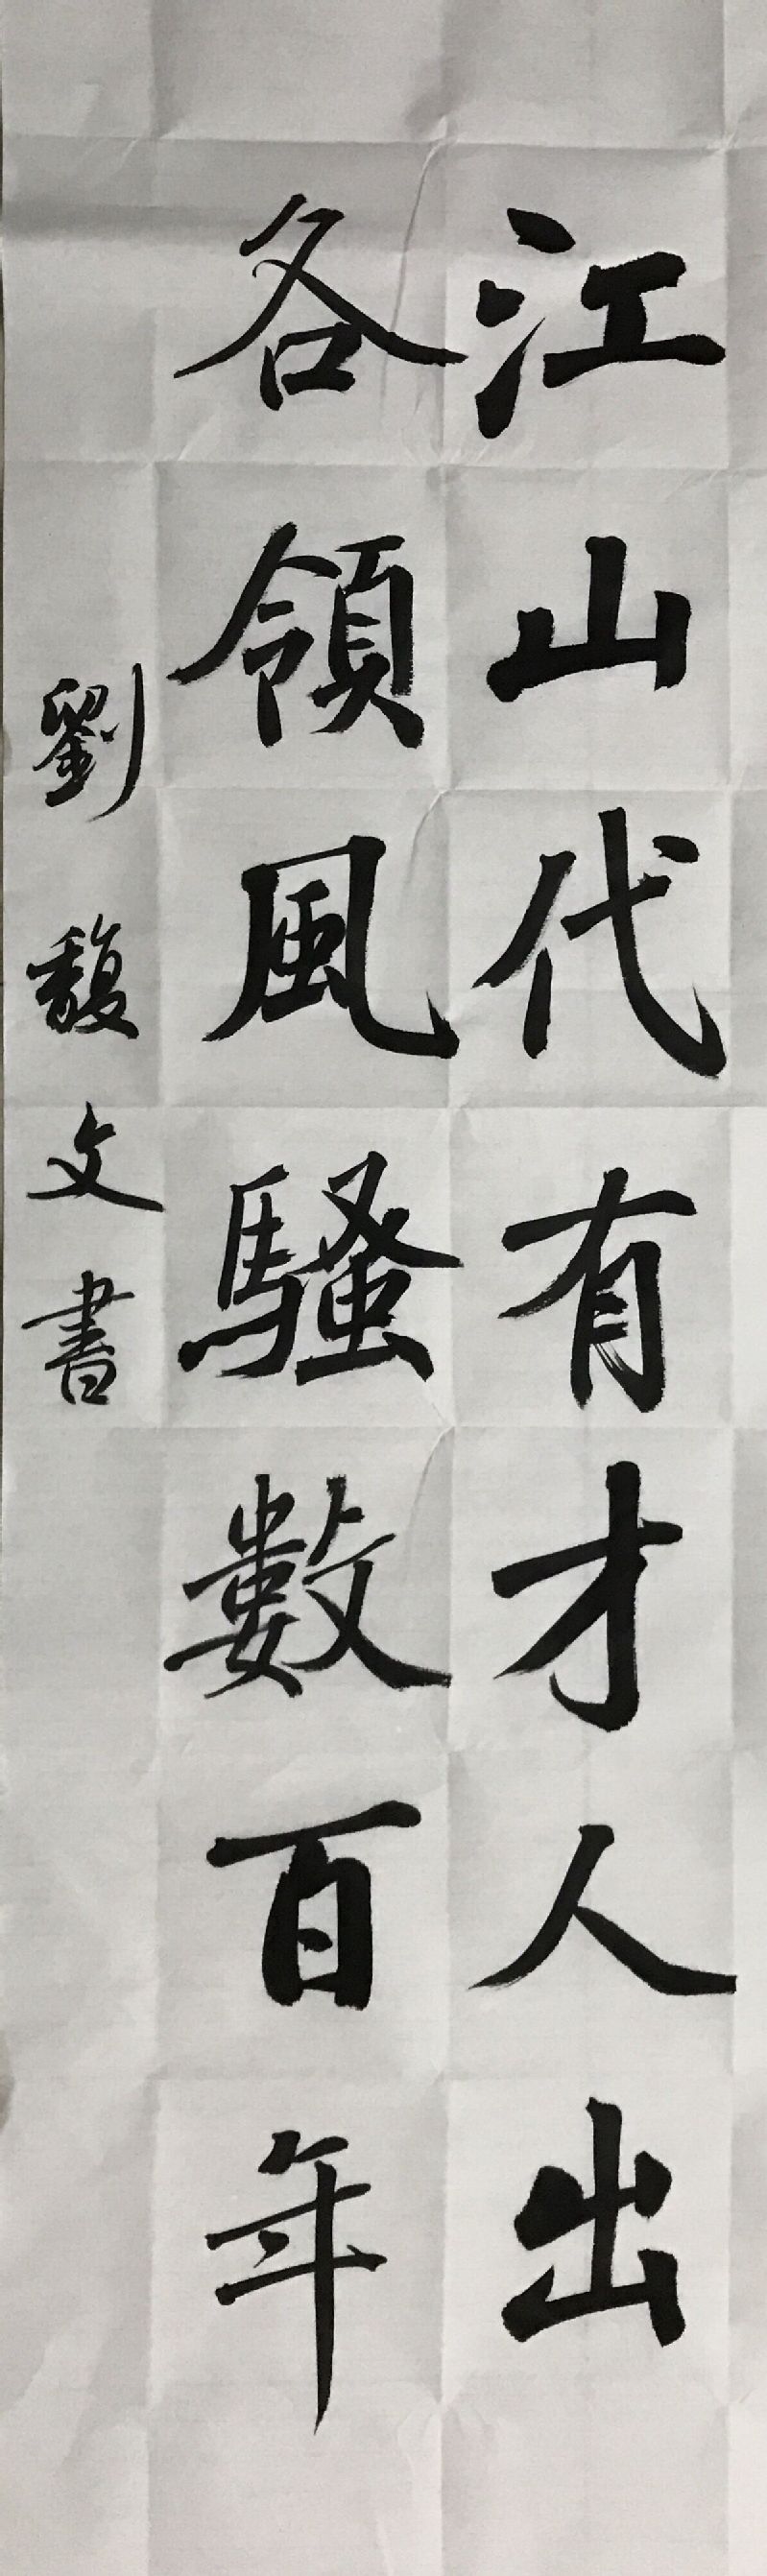 江山代有才人出
各領風騷數百年
劉馥文書